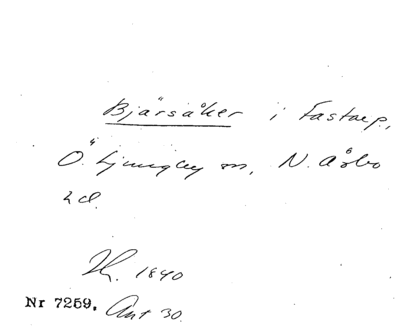 Bjärsåker i Fastarp,
Ö. Ljungby sn, N. Åsbo
hd.
1840
Nr 7259. Ant 30